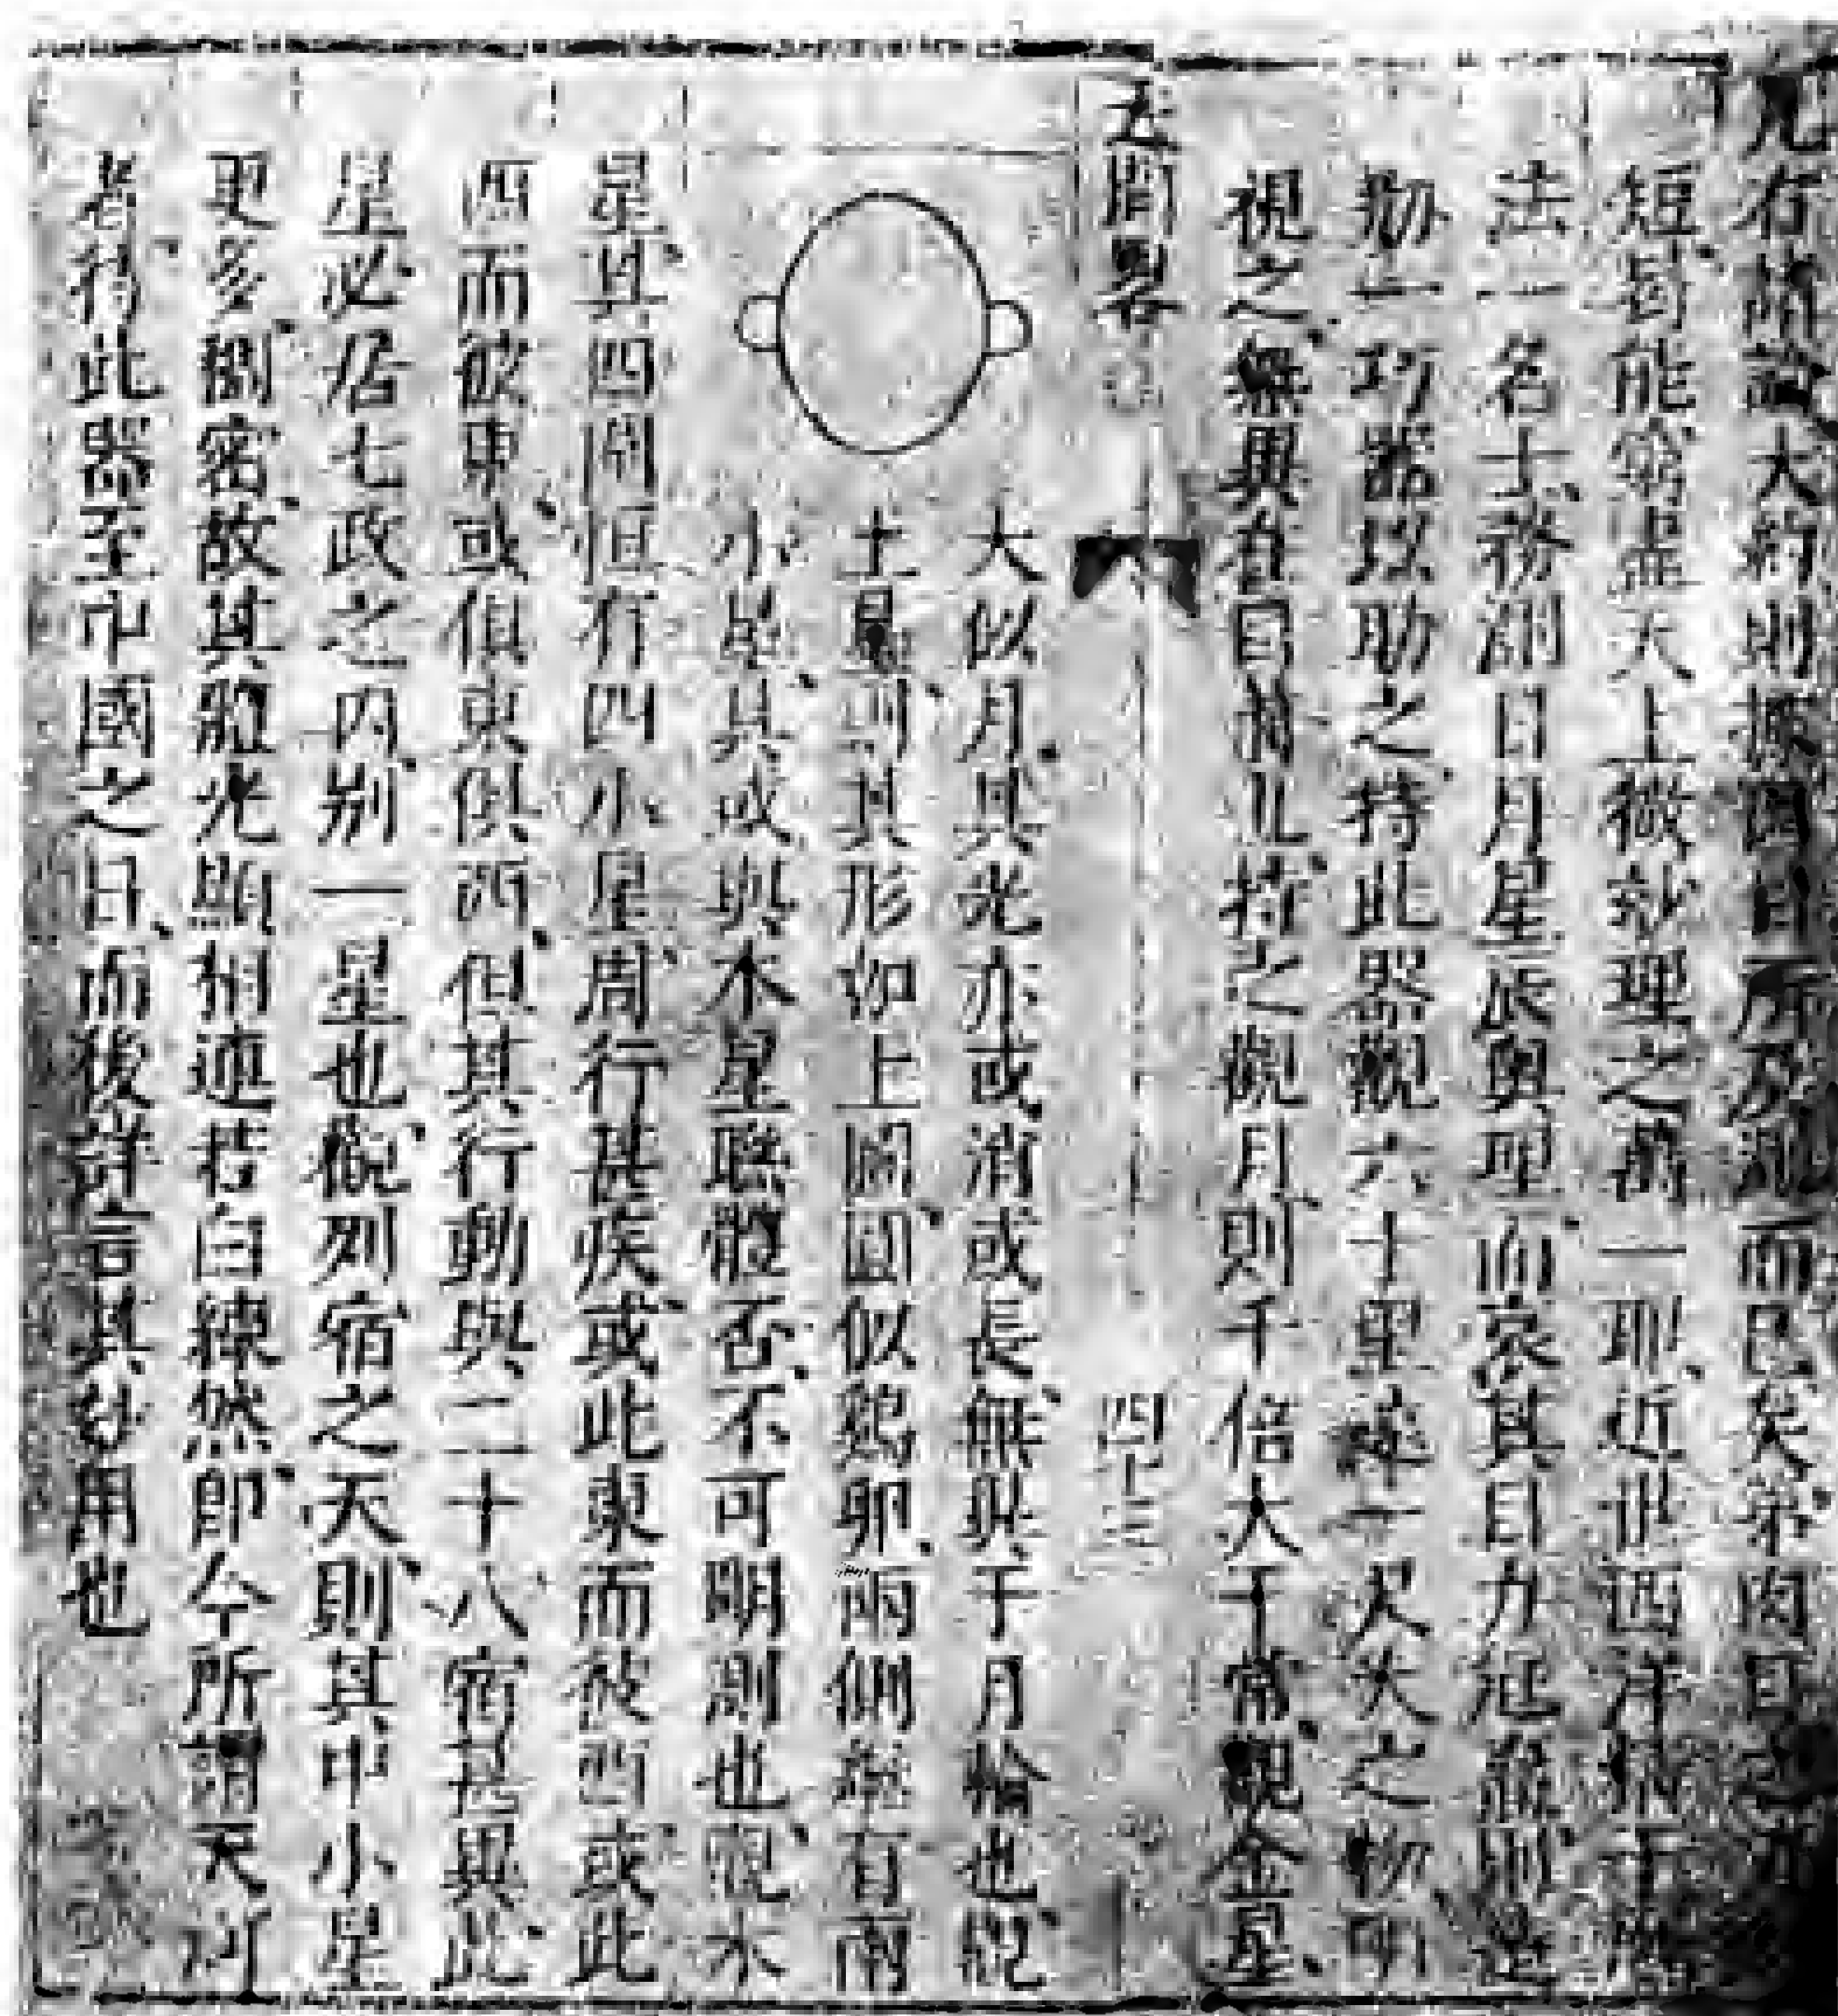 凡右諸論大約則據肉目所及測而已矣第肉目之力
短曷能窮盡天上微妙理之萬一耶近世西洋精于曆
法一名士務測日月星辰奧理而哀其目力尫羸則造
刱一巧器以助之持此器觀六十里遠一尺大之物明
視之無異在目前也持之觀月則千倍大于常觀金星
天問畧
四十三
大似月其光亦或消或長無異于月輪也觀
土星則其形如上圖圓似鷄卵兩側繼有兩
小星其或與本星聯體否不可明測也觀木
星其四圍恒有四小星周行甚疾或此東而彼西或此
西而彼東或俱東俱西但其行動與二十八宿甚異此
星必居七政之内别一星也觀列宿之天則其中小星
更多稠密故其體光顯相連若白練然即今所謂天河
者待此器至中國之日而後詳言其妙用也